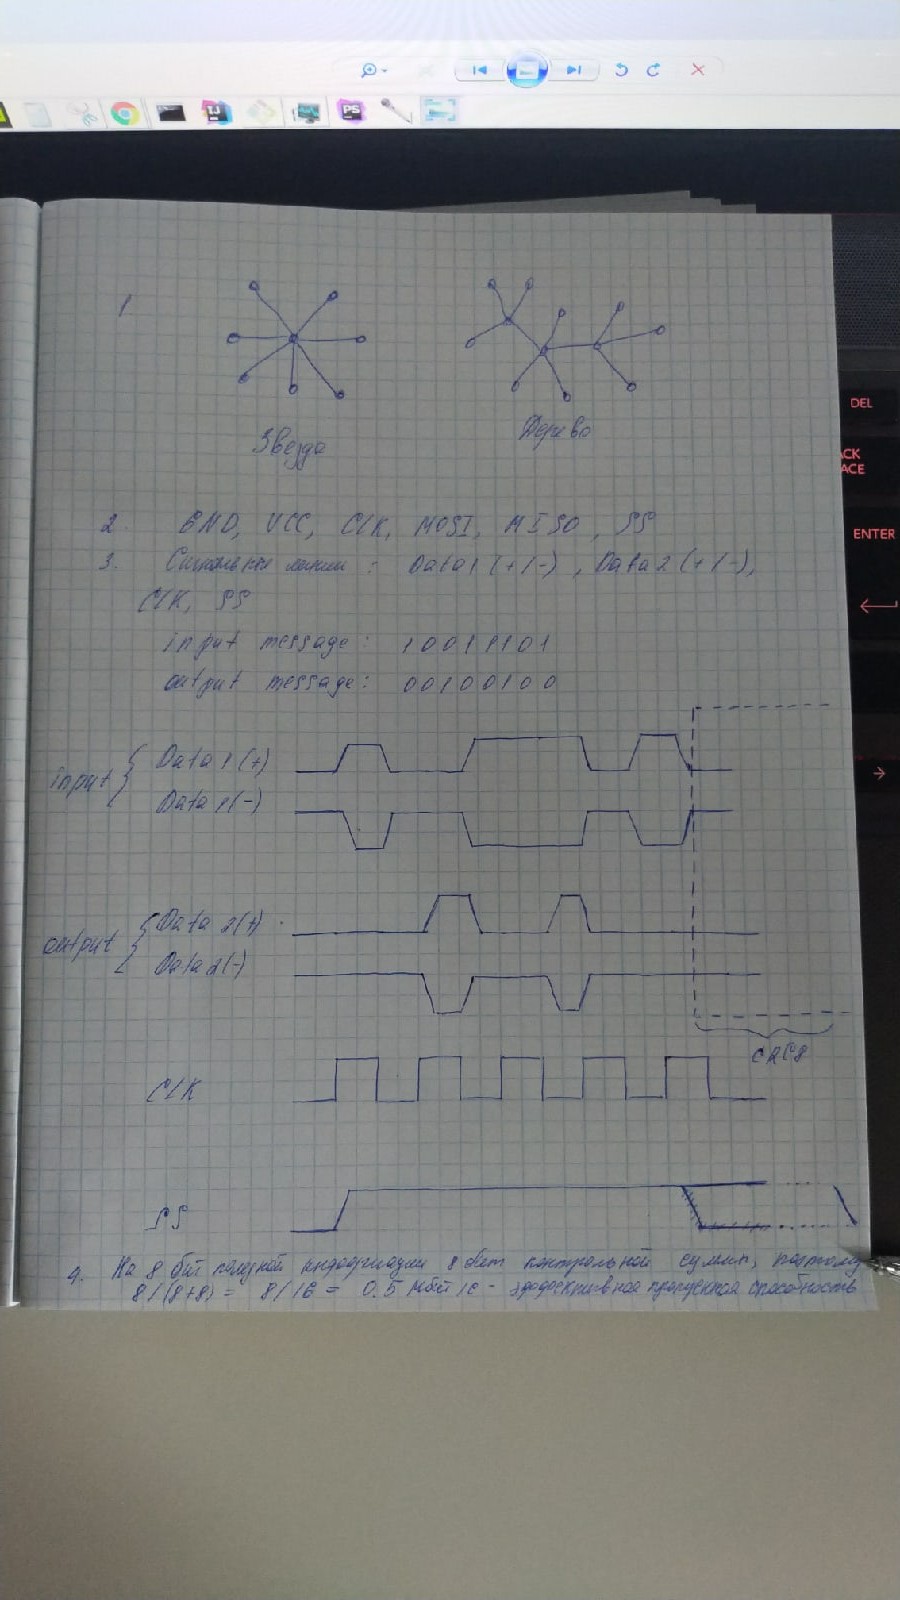 1
Звезда Дерево
2. GND, VCC, CLK, MOSI, MISO, SS
3. Сигнальные линии: Data1(+/-), Data2(+/-),
CLK, SS
input message: 10011101
output message: 00100100
input { Data1(+)
Data1(-)
output { Data2(+)
Data2(-)
CRC8
CLK
SS
4. На 8 бит полезной информации 8 бит контрольной суммы, поэтому
8/(8+8) = 8/16 = 0.5 Мбит/с - эффективная пропускная способность
DEL
ACK
ACE
ENTER
IJ
PS